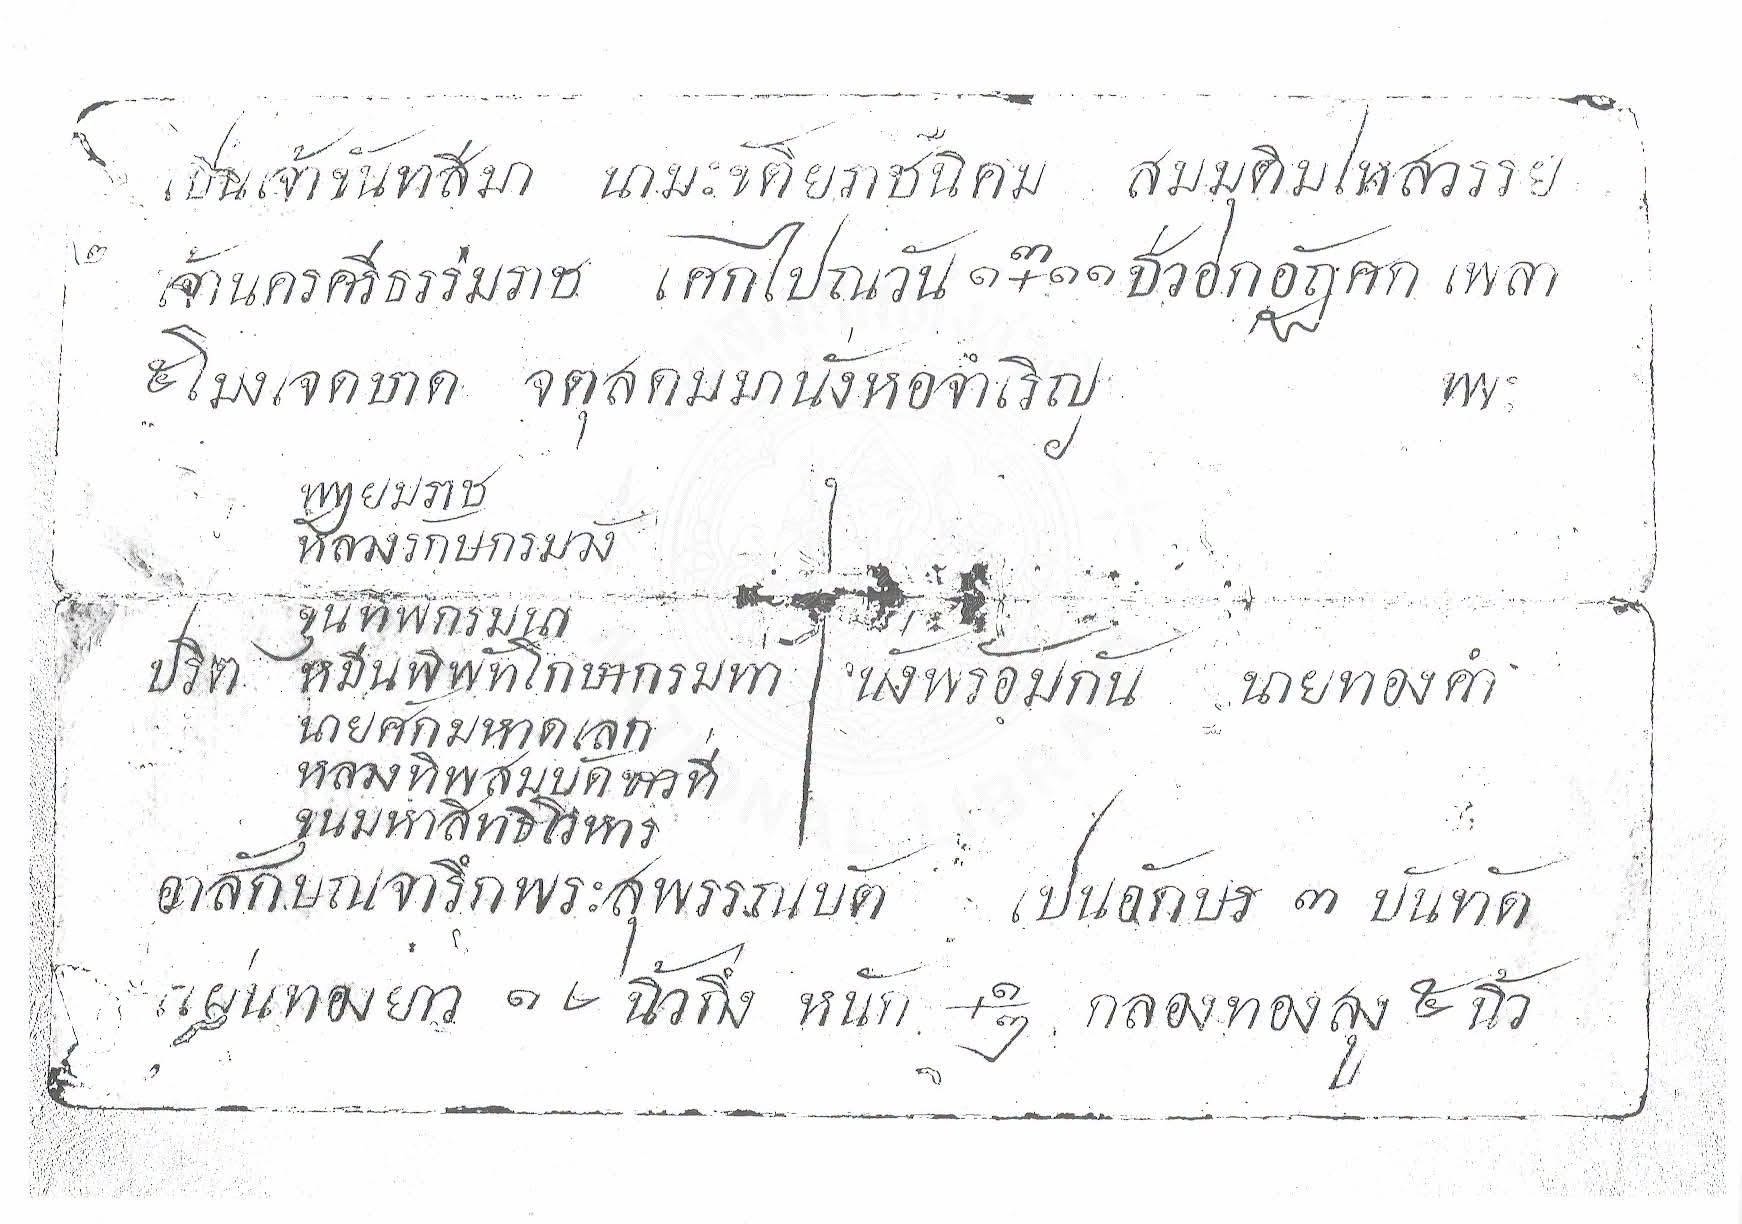 เปนเจ้าขันทสีมา นามะขัติยราชนิคม สมมุติมไหสวรรย
๒ เจ้านครศรีธรรมราช เศกไปณวัน ๑ ๓ ๑๑ ชั่วอกอัฏศก เพลา
๕ โมงเจดบาด จตุสดมมานั่งหอจำเริญ พระ
พญายมราช
หลวงรักษกรมวัง
ขุนทิพกรมนา
ปริต หมื่นพิพัทโกษากรมทา นั่งพร้อมกัน นายทองคำ
นายศักมหาดเลก
หลวงทิพสมบัดชาวที่
ขุนมหาสิทธิโวหาร
อาลักษณจาริกพระสุพรรณบัต เปนอักษร ๓ บันทัด
แผ่นทองยาว ๑๒ นิ้วกึ่ง หนัก ๑ ๓ กลองทองสูง ๕ นิ้ว